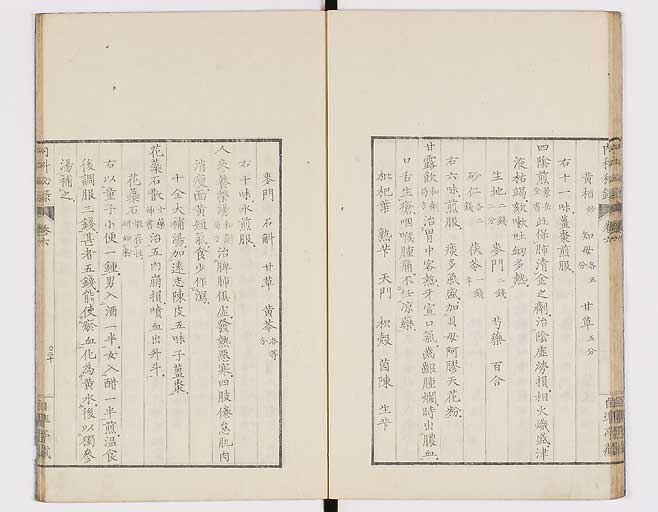 黄栢炒 知母各五分 甘草五分
右十一味薑棗煎服
四陰煎景岳全書此保肺清金之劑治陰虛勞損相火熾盛津
液枯竭欬嗽吐衂多熱
生地二錢 麥門二錢 芍藥 百合
砂仁各二錢 茯苓一錢半
右六味煎服 痰多氣盛加貝母阿膠天花粉
甘露飲和劑局方治胃中客熱牙宣口氣齒齦腫爛時出膿血
口舌生瘡咽喉腫痛不任凉藥
枇杷葉 熟芐 天門 枳殼 茵陳 生芐
麥門 石斛 甘草 黄芩各等分
右十味水煎服
人參養榮湯和劑局方治脾肺俱虛發熱惡寒四肢倦怠肌肉
消瘦面黄短氣食少作瀉
十全大補湯加遠志陳皮五味子薑棗
花蘂石散治五內崩損噴血出升斗
花蘂石
右以童子小便一鍾男入酒一半女入醋一半煎温食
後調服三錢甚者五錢能使瘀血化為黄水後以獨參
湯補之